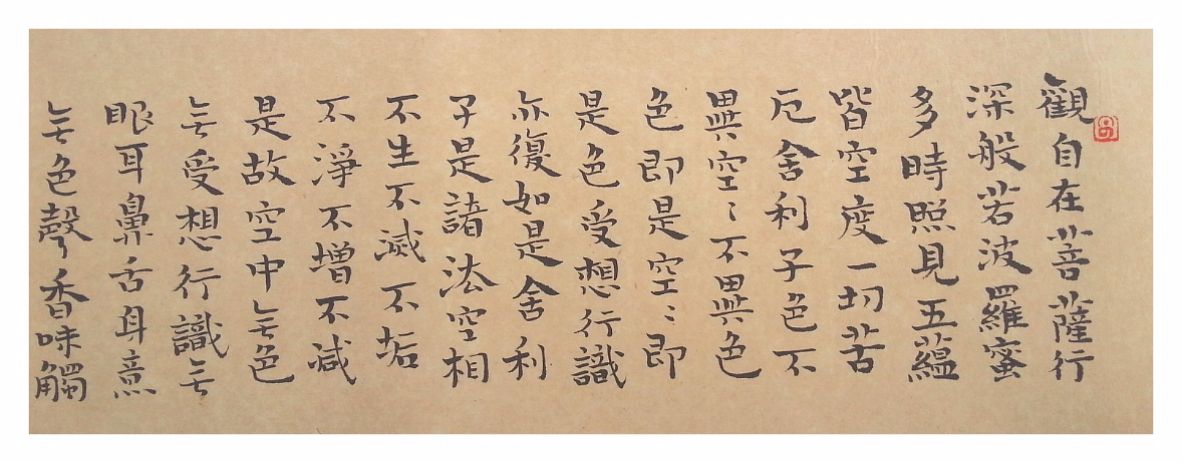 觀自在菩薩行
深般若波羅蜜
多時照見五蘊
皆空度一切苦
厄舍利子色不
異空〻不異色
色即是空〻即
是色受想行識
亦復如是舍利
子是諸法空相
不生不滅不垢
不淨不增不減
是故空中無色
無受想行識無
眼耳鼻舌身意
無色聲香味觸